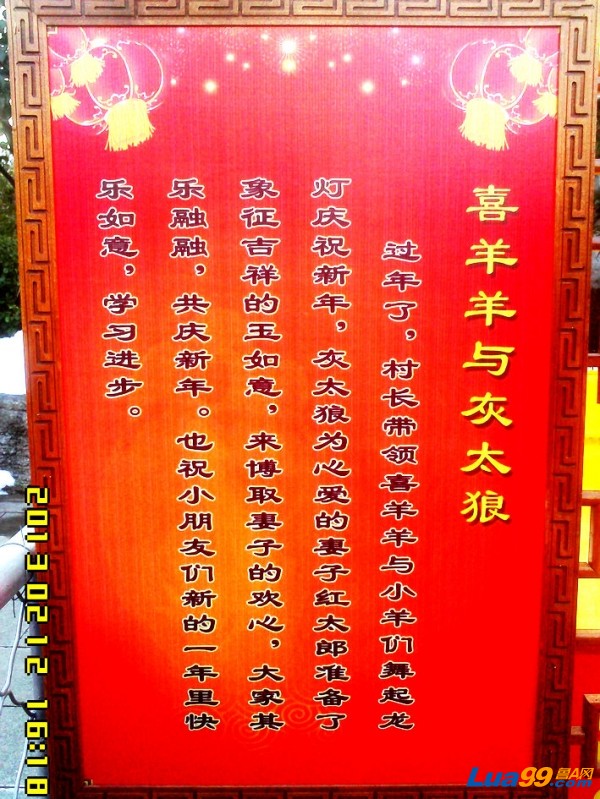 喜羊羊与灰太狼
过年了，村长带领喜羊羊与小羊们舞起龙
灯庆祝新年，灰太狼为心爱的妻子红太郎准备了
象征吉祥的玉如意，来博取妻子的欢心，大家其
乐融融，共庆新年。也祝小朋友们新的一年里快
乐如意，学习进步。
2013 02 12 16:18
Lua99.com
鲁A网